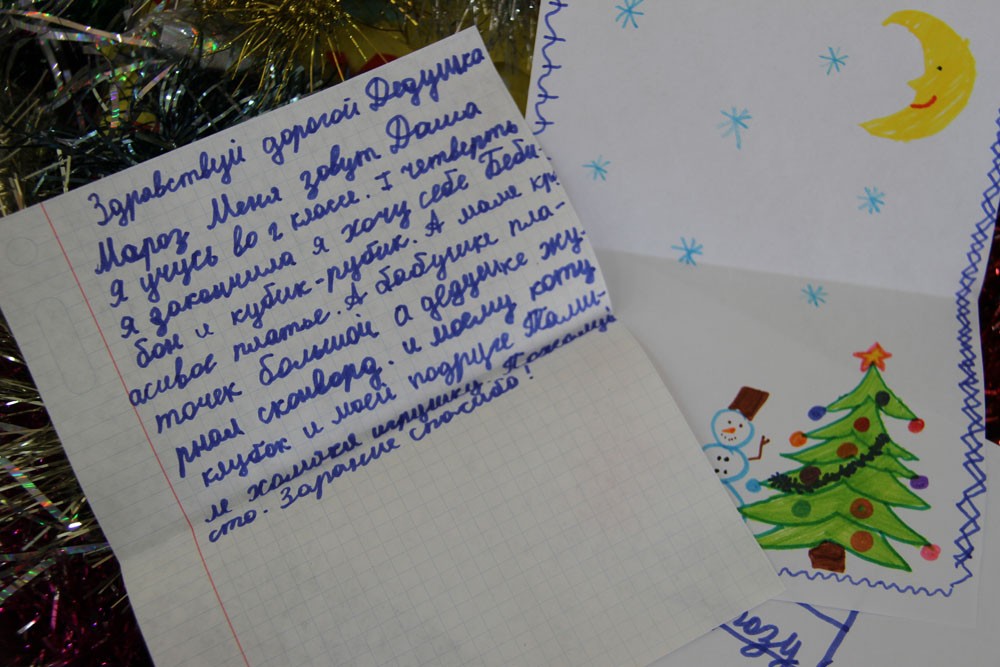 Здравствуй дорогой Дедушка
Мароз Меня зовут Даша
Я учусь во 2 классе. I четверть
я закончила я хочу себе Беби-
бон и кубик-рубик. А маме кр-
асивое платье. А бабушке пла-
точек большой а дедушке жу-
рнал сконворд. и моему коту
клубок и моей подруге Тами-
ле хомяка игрушку. Пожалуй
сто. Зарание спасибо!